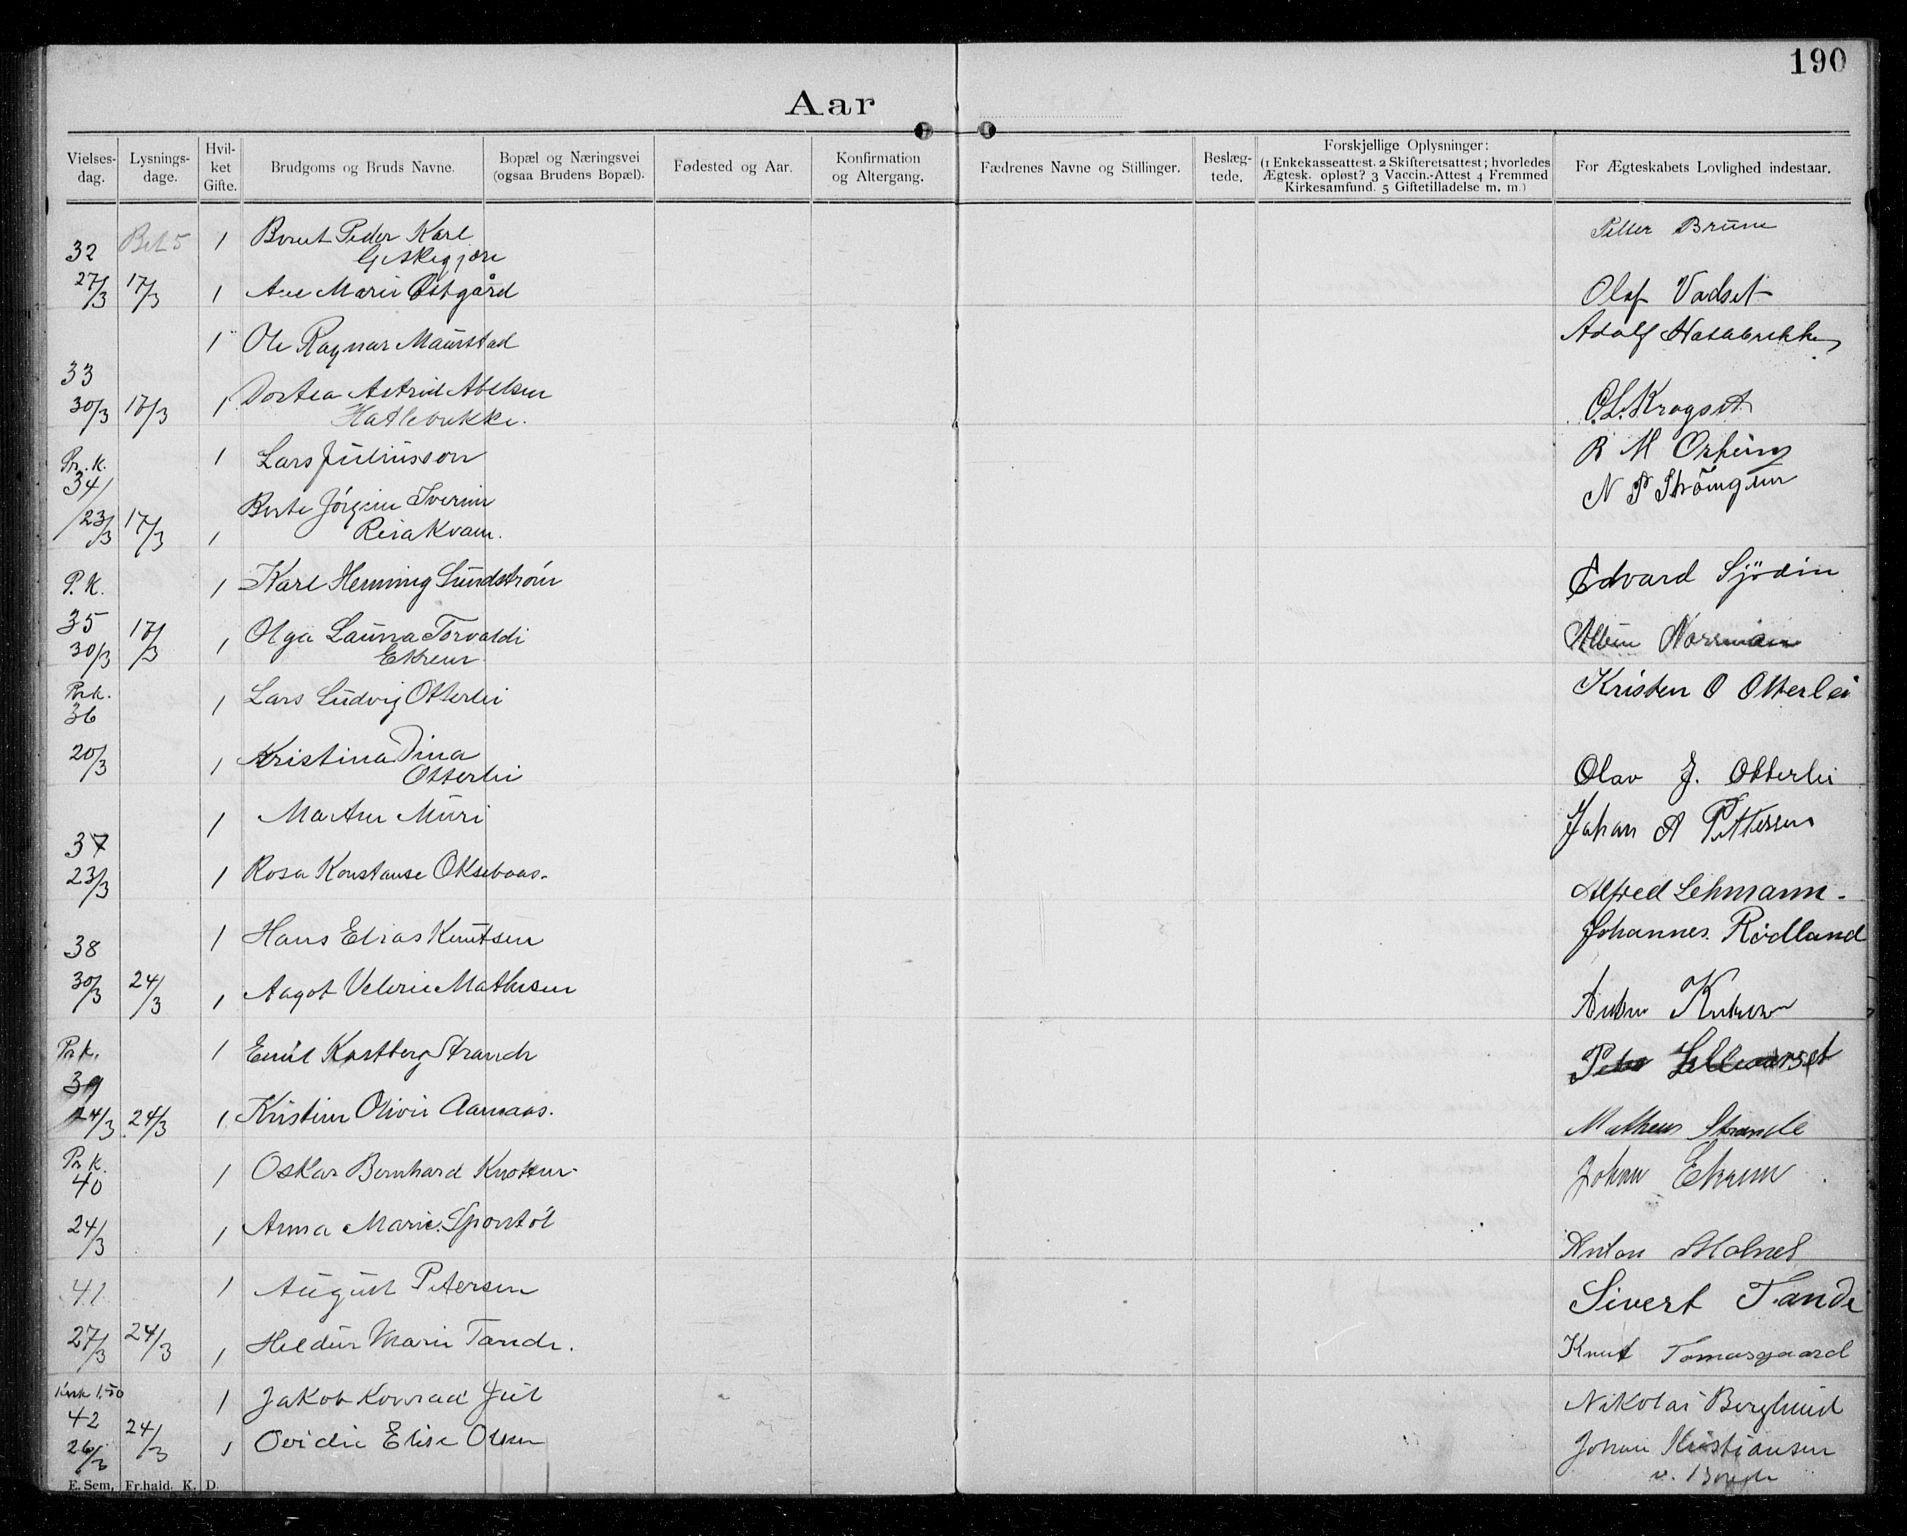 190
Aar
Vielses-
dag.
Lysnings-
dage.
Hvil-
ket
Gifte.
Brudgoms og Bruds Navne.
Bopæl og Næringsvei
(ogsaa Brudens Bopæl).
Fødested og Aar.
Konfirmation
og Altergang.
Fædrenes Navne og Stillinger.
Beslæg-
tede.
Forskjellige Oplysninger:
(1 Enkekasseattest. 2 Skifteretsattest; hvorledes
Ægtesk. opløst? 3 Vaccin.-Attest 4 Fremmed
Kirkesamfund. 5 Giftetilladelse m. m.)
For Ægteskabets Lovlighed indestaar.
32 Bet 5 1 Bernt Peder Karl Petter Brune
Geskegjære
27/3 17/3 1 Ane Marie Østgård Olaf Vadset
1 Ole Ragnar Maurstad Adolf Hatlebrekke
33
30/3 17/3 1 Dortea Astrid Abelsen O.L. Kragset
Hatlebrekke.
Pr. K. 1 Lars Juliusson R M
34 N P
23/3 17/3 1 Berte Jørgine Iverine
Reiakvam.
P. K. 1 Karl Henning Sundström Edvard Sjödin
35
30/3 17/3 1 Olga Launa Torvaldi Albin Norrman
Ekrem
Prk. 1 Lars Ludvig Otterlei Kristen O Otterlei
36
20/3 1 Kristina Dina Olav J. Otterlei
Otterlei
1 Martin Muri Johan A Pettersen
37
23/3 1 Rosa Konstanse Oksebaas. Alfred Lehmann.
38 1 Hans Elias Knutsen Johannes Rödland
30/3 24/3 1 Aagot Velerie Mathisen Knutsen
Prk. 1 Emil Kastberg Strande Peter
39
24/3 24/3 1 Kristine Olivie Aarnaas. Matheus Strande
Pr K. 1 Oskar Bernhard Knotten Johan Ekrem
40
24/3 1 Anna Marie Sponstöl Anton Molnes
41 1 August Petersen Sivert Tande
27/3 24/3 1 Heldur Marie Tande. Knut Tomasgaard
Kirk 1,50 1 Jakob Konrad Jul Nikolai Berglund
42
26/3 24/3 1 Ovidie Elise Olsen Johan Kristiansen
E. Sem, Fr.hald. K. D.